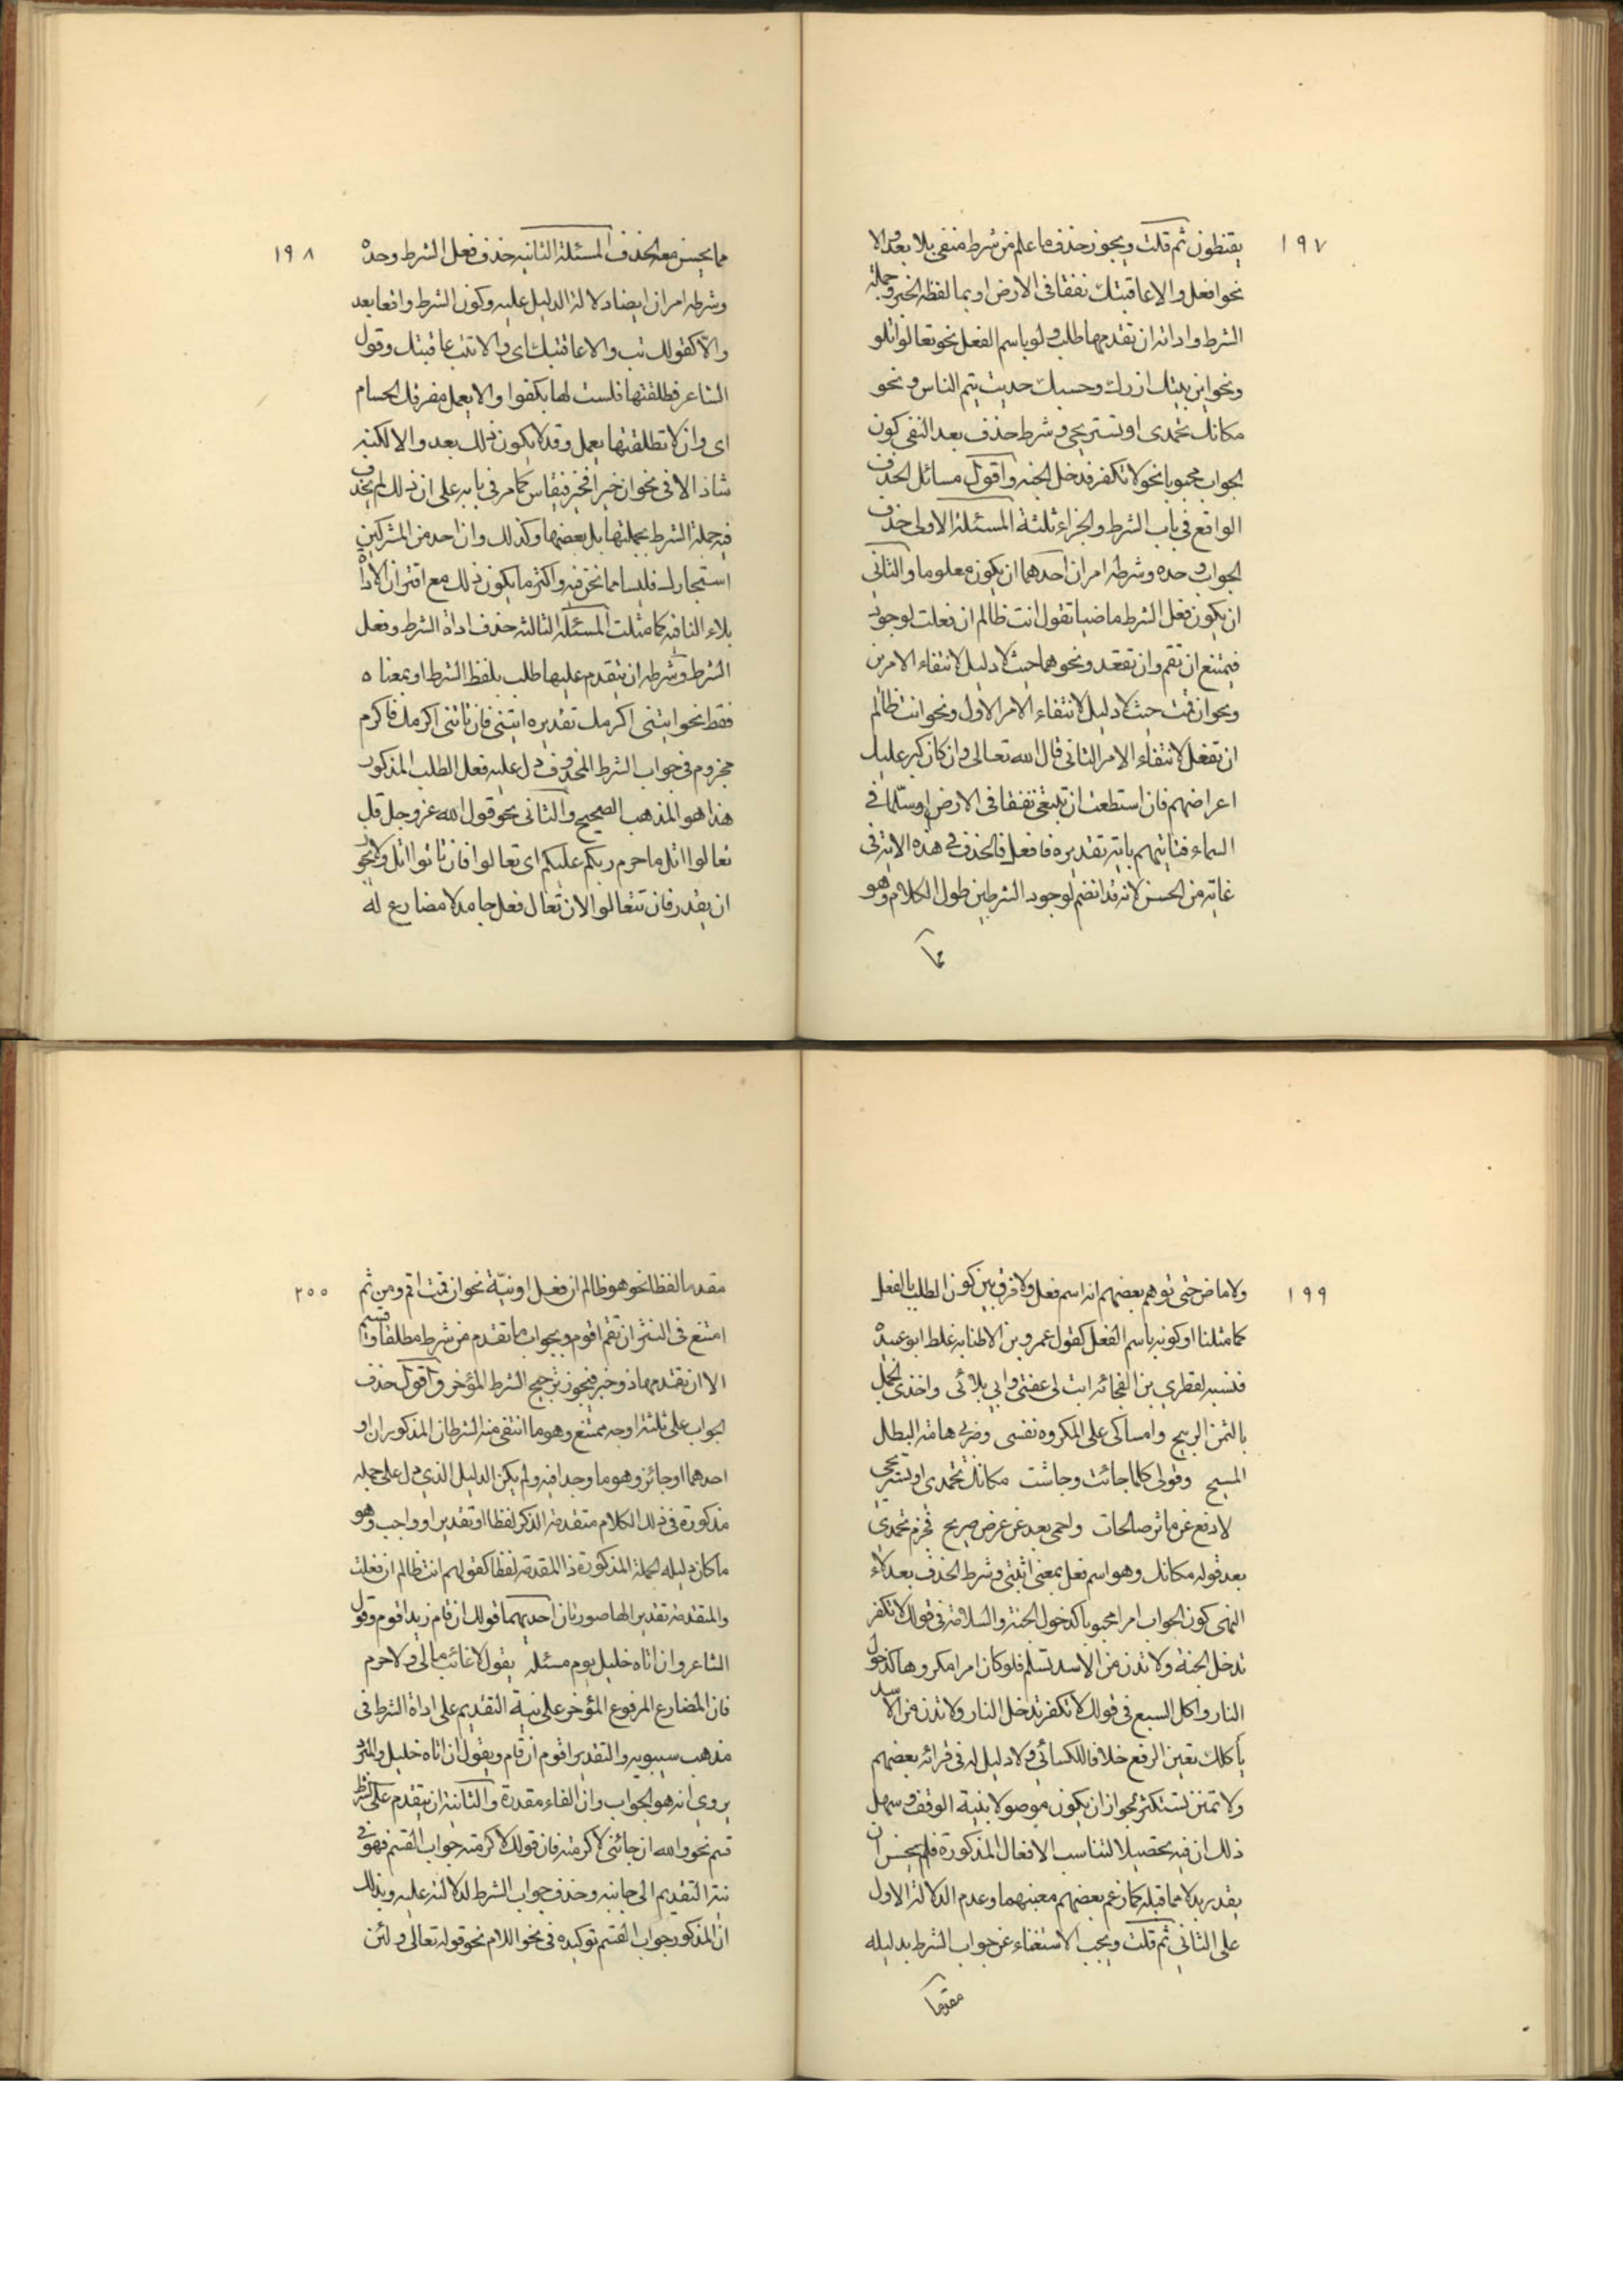 ١٩٧
يقنطون ثم قلت ويجوز حذف ما علم من شرط منفى بلا بعد والا
نحو افعل والا عاقبتك نفقا فى الارض او بما لفظه الخبر وجملة
الشرط واداته ان تقدمها طلب ولو باسم الفعل نحو تعالوا اتلو
ونحو اين بيتك ازرك وحسبك حديث ينم الناس ونحو
مكانك تحمدى او تستريحى وشرط حذف بعد النفى كون
الجواب محبوبا نحو لا تكفر تدخل الجنه واقول مسائل الحذف
الواقع فى باب الشرط والجزاء ثلثة المسئلة الاولى حذف
الجواب وحده وشرطه امران احدهما ان يكون معلوما والثانى
ان يكون فعل الشرط ماضيا تقول انت ظالم ان فعلت لوجود
فيمتنع ان تقم وان تقعد ونحوهما حيث لا دليل لانتفاء الامرين
ونحو ان قمت حيث لا دليل لانتفاء الامر الاول ونحو انت ظالم
ان تفعل لانتفاء الامر الثانى قال الله تعالى وان كان كبر عليك
اعراضهم فان استطعت ان تبتغى نفقا فى الارض او سلما فى
السماء فتأتيهم باية تقديره فافعل فالحذف فى هذه الاية فى
غاية من الحسن لانه قد انضم لوجود الشرطين طول الكلام وهو
مما
١٩٨
مما يحسن معه الحذف المسئلة الثانيه حذف فعل الشرط وحده
وشرطه امران ايضا دلالة الدليل عليه وكون الشرط واقعا بعد
والا كقولك تب والا عاقبتك اى والا تتب عاقبتك وقول
الشاعر فطلقتها فلست لها بكفوا والا يعل مفرقك الحسام
اى وان لا تطلقتها يعمل وقد لا يكون ذلك بعد والا لكنه
شاذ الا فى نحو ان خيرا فخير فيقاس كما مر فى بابه على ان ذلك لم يحذف
فيه جملة الشرط بجملتها بل بعضها وكذلك وان احد من المشركين
استجارك فليسا مما نحن فيه واكثر ما يكون ذلك مع اقتران الاداة
بلاء النافيه كما مثلت المسئلة الثالثه حذف اداة الشرط وفعل
الشرط وشرطه ان يتقدم عليها طلب بلفظ الشرط او بمعناه
فقط نحو ايتنى اكرمك تقديره ايتنى فان تاتنى اكرمك فاكرم
مجزوم فى جواب الشرط المحذوف دل عليه فعل الطلب المذكور
هذا هو المذهب الصحيح والثانى نحو قول الله عز وجل قل
تعالوا اتل ما حرم ربكم عليكم اى تعالوا فان تاتوا اتل ولا يجوز
ان يقدر فان تتعالوا لان تعال فعل جامد لا مضارع له
١٩٩
ولا ماض حتى توهم بعضهم انه اسم فعل ولا فرق بين كون الطلب بالفعل
كما مثلنا او كونه باسم الفعل كقول عمرو بن الاطنابه غلط ابو عبيده
فنسبه لقطري بن الفجائه ابت لى عفتى وابى بلائى واخذى الحمل
بالثمن الربيح وامساكى على المكروه نفسى وضربى هامة البطل
المسيح وقولى كلما جائت وجاشت مكانك تحمدى او تستريحى
لادفع عن مآثر صالحات واحمى بعد عن عرض صريح فجزم تحمدى
بعد قوله مكانك وهو اسم فعل بمعنى اثبتى وشرط الحذف بعد لاء
النهى كون الجواب امرا محبوبا كدخول الجنة والسلامة فى قولك لا تكفر
تدخل الجنة ولا تدن من الاسد تسلم فلو كان امرا مكروها كدخول
النار واكل السبع فى قولك لا تكفر تدخل النار ولا تدن من الاسد
يأكلك تعين الرفع خلافا للكسائى ولا دليل له فى قرائة بعضهم
ولا تمنن تستكثر لجواز ان يكون موصولا بنية الوقف وسهل
ذلك ان فيه تحصيلا لتناسب الافعال المذكورة فلم يحسن ان
يقدر بدلا مما قبله كما زعم بعضهم معنيهما وعدم الدلالة الاول
على الثانى ثم قلت ويجب الاستغناء عن جواب الشرط بدليله
مقدما
٢٠٠
مقدما لفظا نحو هو ظالم ان فعل او نية نحو ان قمت اقم ومن ثم
امتنع فى النثر ان تقم اقوم وبجواب ما تقدم من شرط مطلقا او قسم
الا ان تقدمهما ذو خبر فيجوز ترجيح الشرط المؤخر واقول حذف
الجواب على ثلثة اوجه ممتنع وهو ما انتفى منه الشرطان المذكوران او
احدهما او جائز وهو ما وجد افيه ولم يكن الدليل الذى دل على جمله
مذكورة فى ذلك الكلام متقدمة الذكر لفظا او تقديرا وواجب وهو
ما كان دليله الجملة المذكورة ذا المقدمة لفظا كقولهم انت ظالم ان فعلت
والمتقدمة تقديرا لها صورتان احديهما قولك ان قام زيد اقوم وقول
الشاعر وان اتاه خليل يوم مسئلة يقول لا غائب مالى ولا حرم
فان المضارع المرفوع المؤخر على نية التقديم على اداة الشرط فى
مذهب سيبويه والتقدير اقوم ان قام ويقول ان اتاه خليل والمبرد
يروى انه هو الجواب وان الفاء مقدرة والثانية ان يتقدم على الشرط
قسم نحو والله ان جائنى لاكرمته فان قولك لاكرمته جواب القسم فهو فى
نية التقديم الى جانبه وحذف جواب الشرط لدلالته عليه ويدلك
ان المذكور جواب القسم توكيده فى نحو اللام نحو قوله تعالى ولئن